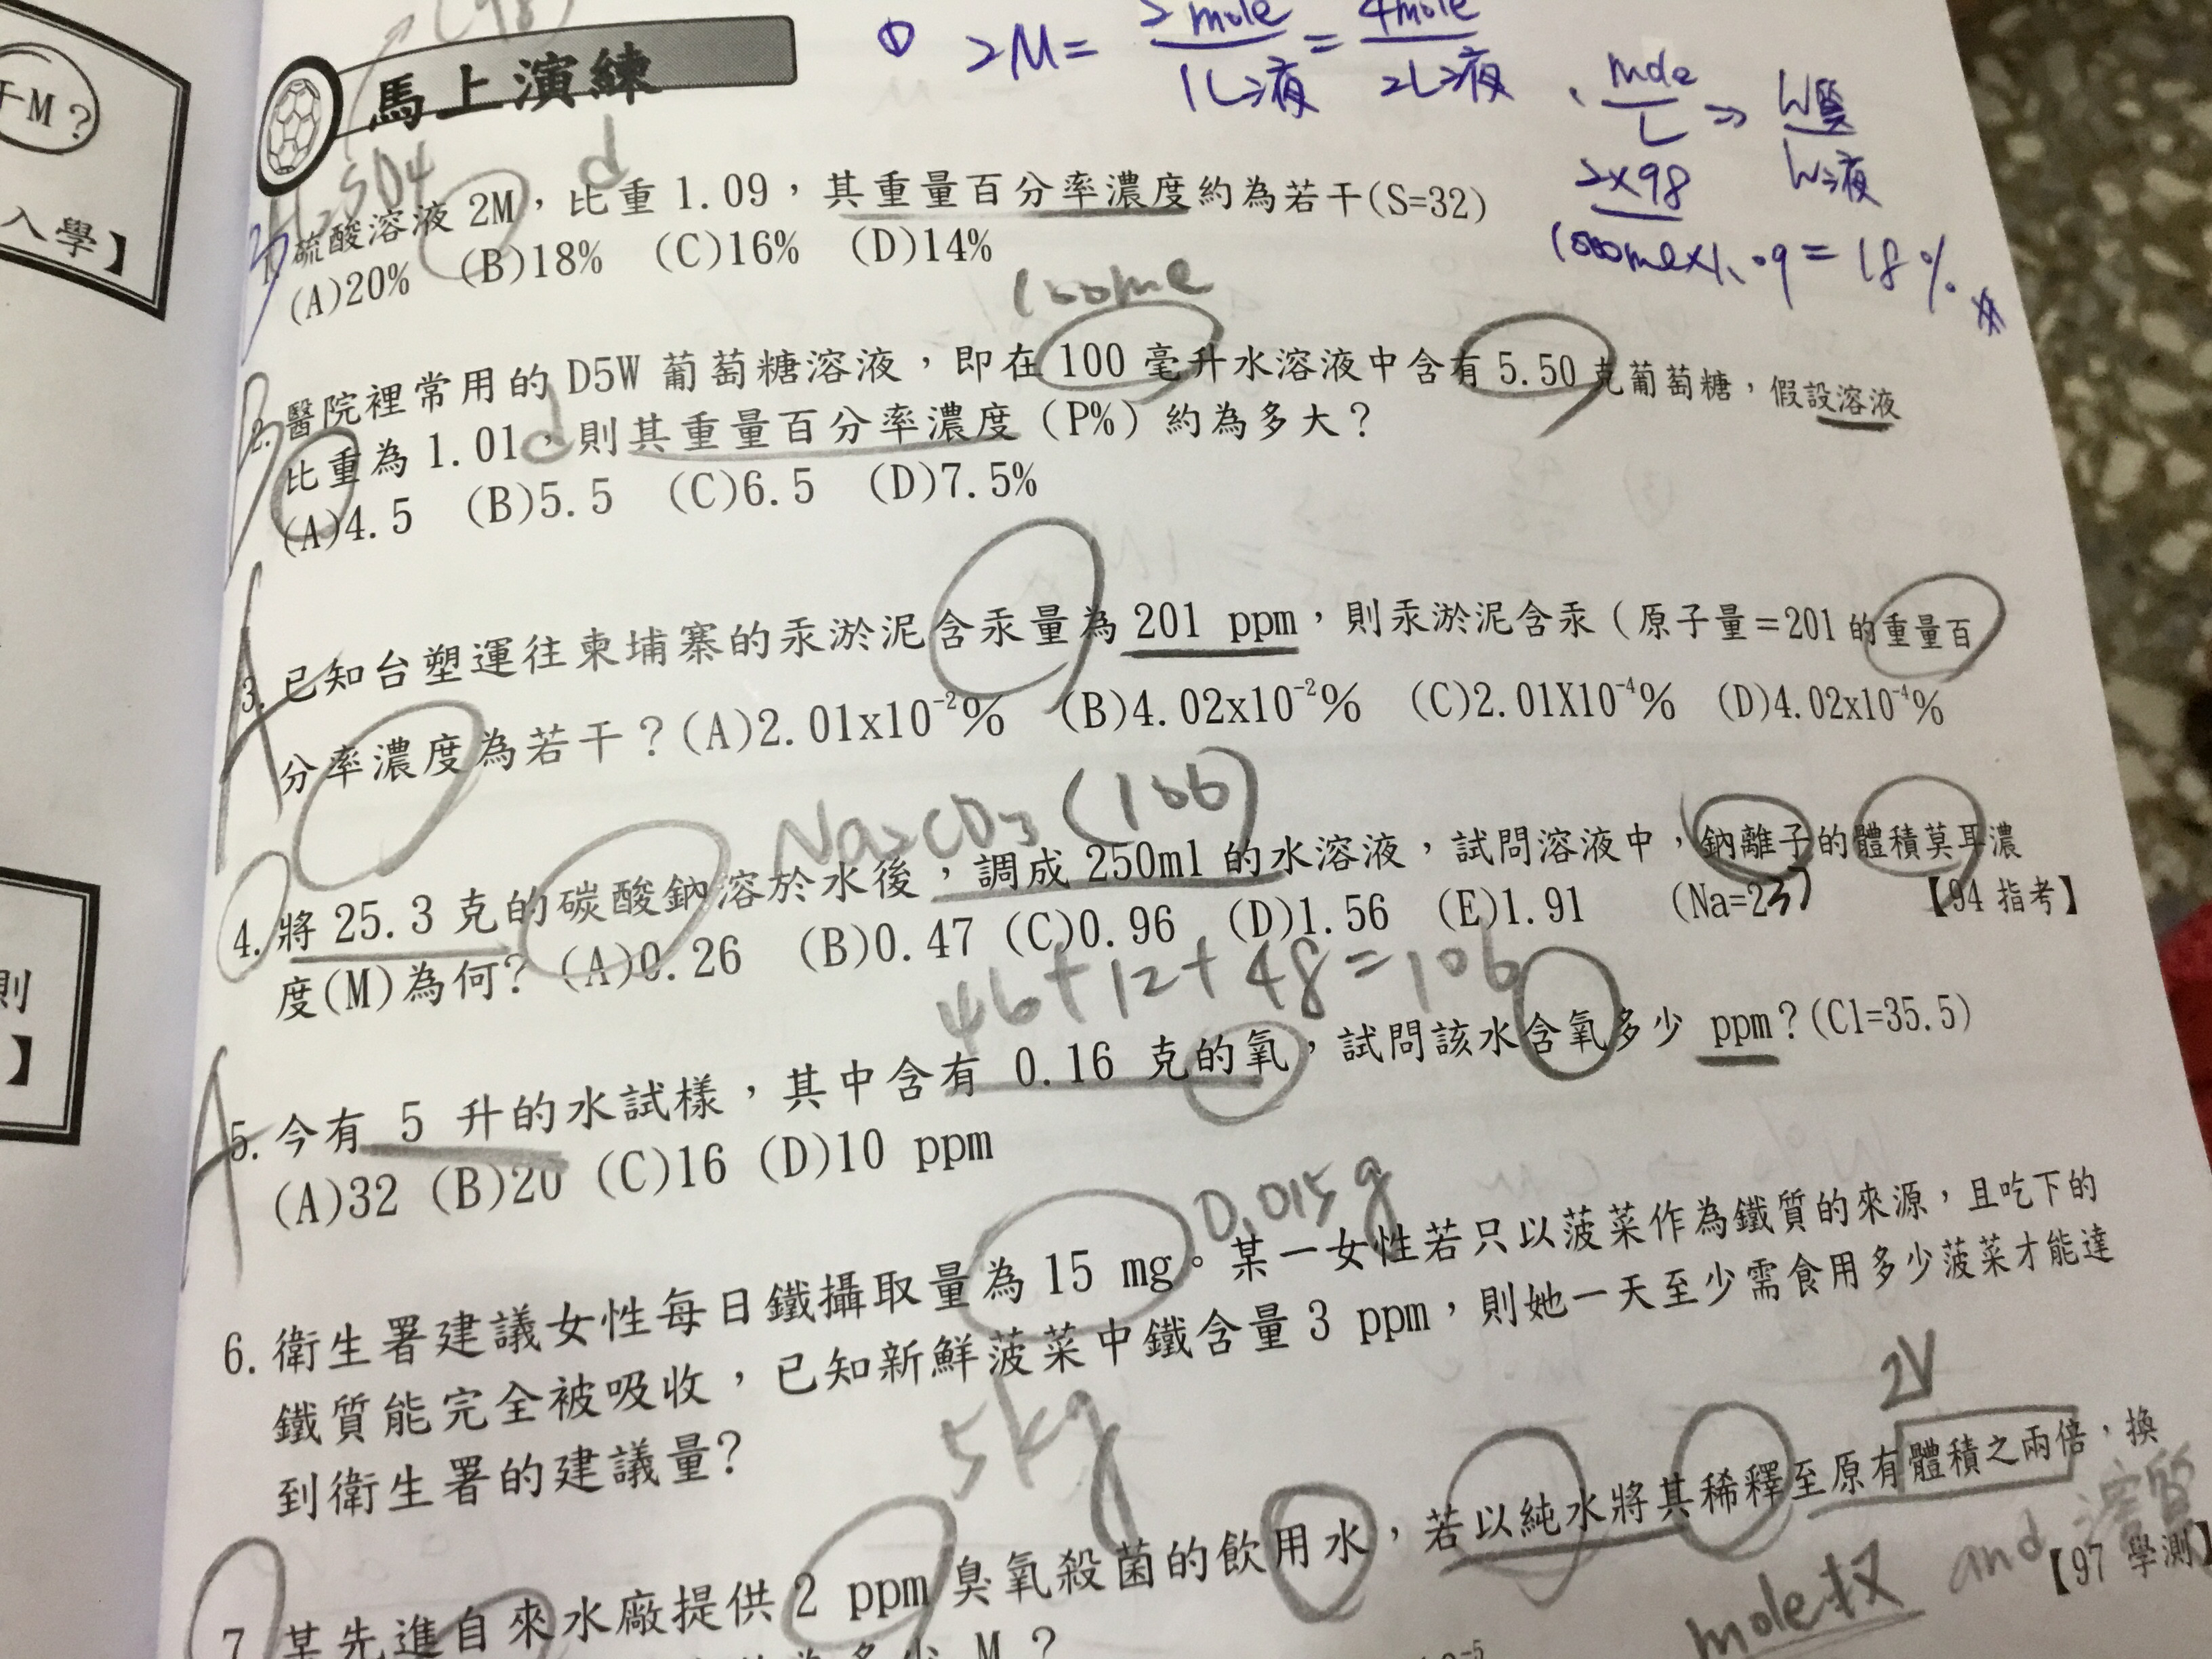 (98)
① 2M= 2mole/1L液 = 4mole/2L液
mole/L ⇒ W質/W液
2×98/1000ml×1.09 = 18%
千M?
入學】
則
】
馬上演練
H2SO4
d
1. 硫酸溶液 2M,比重 1.09,其重量百分率濃度約為若干(S=32)
(A)20% (B)18% (C)16% (D)14%
100ml
2. 醫院裡常用的 D5W 葡萄糖溶液,即在 100 毫升水溶液中含有 5.50 克葡萄糖,假設溶液
比重為 1.01,則其重量百分率濃度(P%)約為多大?
d
(A)4.5 (B)5.5 (C)6.5 (D)7.5%
B
A
3. 已知台塑運往柬埔寨的汞淤泥含汞量為 201 ppm,則汞淤泥含汞(原子量=201 的重量百
分率濃度為若干?(A)2.01x10⁻²% (B)4.02x10⁻²% (C)2.01X10⁻⁴% (D)4.02x10⁻⁴%
Na2CO3 (106)
4. 將 25.3 克的碳酸鈉溶於水後,調成 250ml 的水溶液,試問溶液中,鈉離子的體積莫耳濃
度(M)為何? (A)0.26 (B)0.47 (C)0.96 (D)1.56 (E)1.91 (Na=23) 【94 指考】
46+12+48=106
A
5. 今有 5 升的水試樣,其中含有 0.16 克的氧,試問該水含氧多少 ppm?(Cl=35.5)
(A)32 (B)20 (C)16 (D)10 ppm
0.015g
6. 衛生署建議女性每日鐵攝取量為 15 mg。某一女性若只以菠菜作為鐵質的來源,且吃下的
鐵質能完全被吸收,已知新鮮菠菜中鐵含量 3 ppm,則她一天至少需食用多少菠菜才能達
到衛生署的建議量?
5kg
2V
7. 某先進自來水廠提供 2 ppm 臭氧殺菌的飲用水,若以純水將其稀釋至原有體積之兩倍,換
mole and 溶質
【97 學測】
為多少 M?